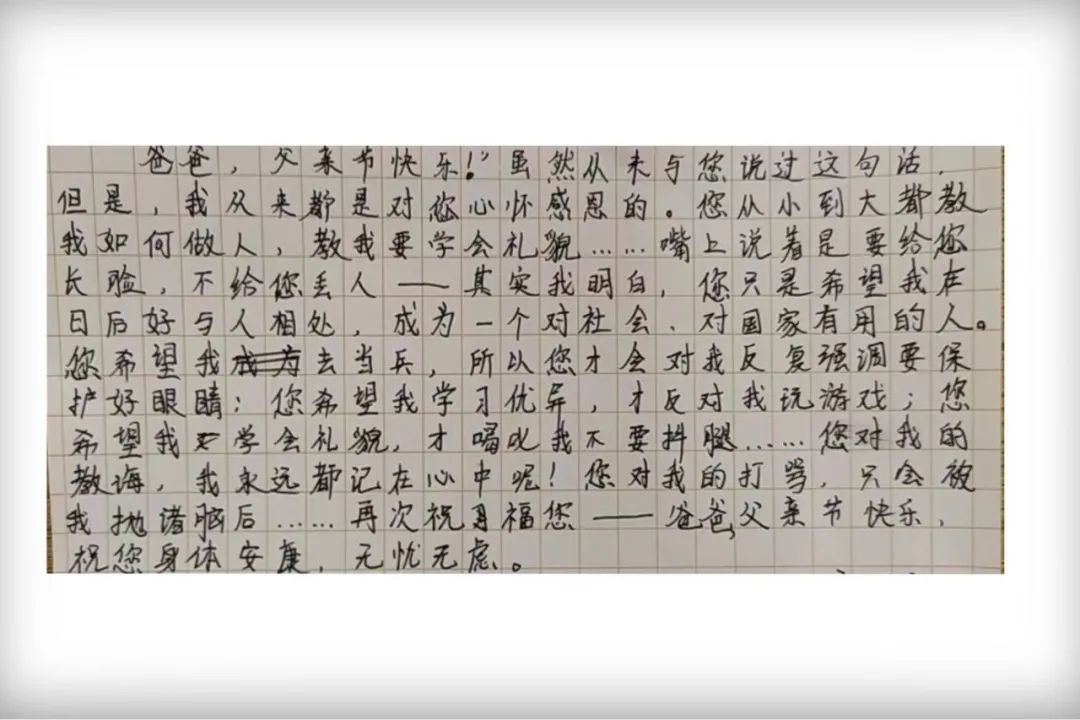 爸爸，父亲节快乐！”虽然从未与您说过这句话，
但是，我从来都是对您心怀感恩的。您从小到大都教
我如何做人，教我要学会礼貌……嘴上说着是要给您
长脸，不给您丢人——其实我明白，您只是希望我在
日后好与人相处，成为一个对社会、对国家有用的人。
您希望我去当兵，所以您才会对我反复强调要保
护好眼睛；您希望我学习优异，才反对我玩游戏；您
希望我学会礼貌，才喝叱我不要抖腿……您对我的
教诲，我永远都记在心中呢！您对我的打骂，只会被
我抛诸脑后……再次祝福您——爸爸父亲节快乐，
祝您身体安康，无忧无虑。